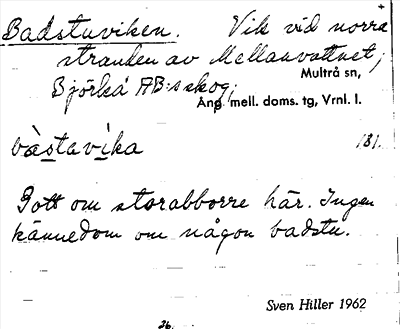 Badstuviken. Vik vid norra
stranden av Mellanvattnet;
Multrå sn,
Björkå AB:s skog;
Ång. mell. doms. tg, Vrnl. l.
bàstavika 131.
Gott om storabborre här. Ingen
kännedom om någon badstu.
Sven Hiller 1962
26.